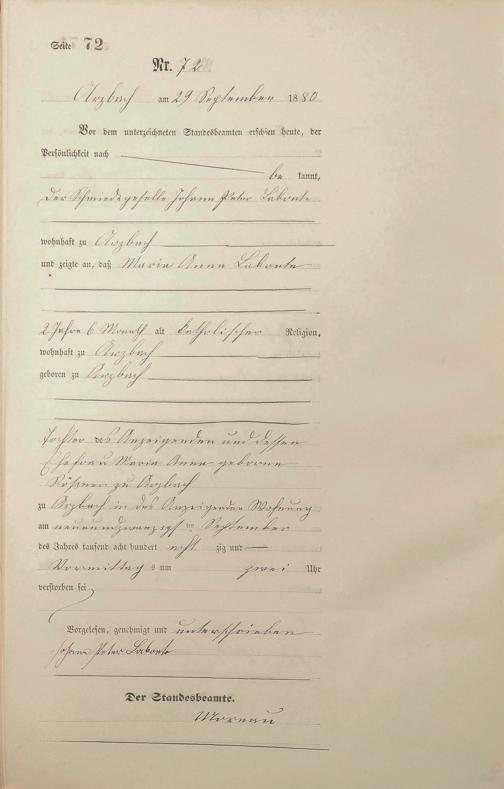 Seite 72
Nr. 72
Arzbach am 29 September 1880
Vor dem unterzeichneten Standesbeamten erschien heute, der
Persönlichkeit nach
be kannt,
der Schmiedgeselle Johann Peter Labonte
wohnhaft zu Arzbach
und zeigte an, daß Maria Anna Labonte
2 Jahre 6 Monath alt katholischer Religion,
wohnhaft zu Arzbach
geboren zu Arzbach
Tochter des Anzeigenden und dessen
Ehefrau Maria Anna geborene
zu Arzbach
zu Arzbach in des Anzeigenden Wohnung
am neunundzwanzigst September
des Jahres tausend acht hundert acht zig und
Vormittag s um zwei Uhr
verstorben sei
Vorgelesen, genehmigt und unterschrieben
Johann Peter Labonte
Der Standesbeamte.
Moreau